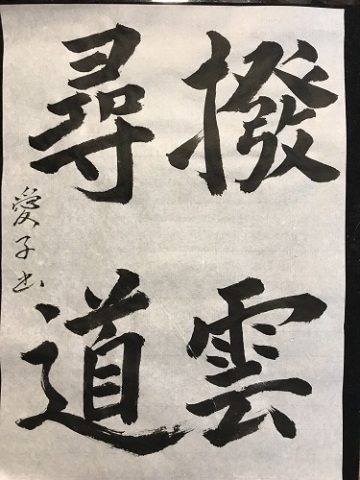 撥雲
尋道
愛子書